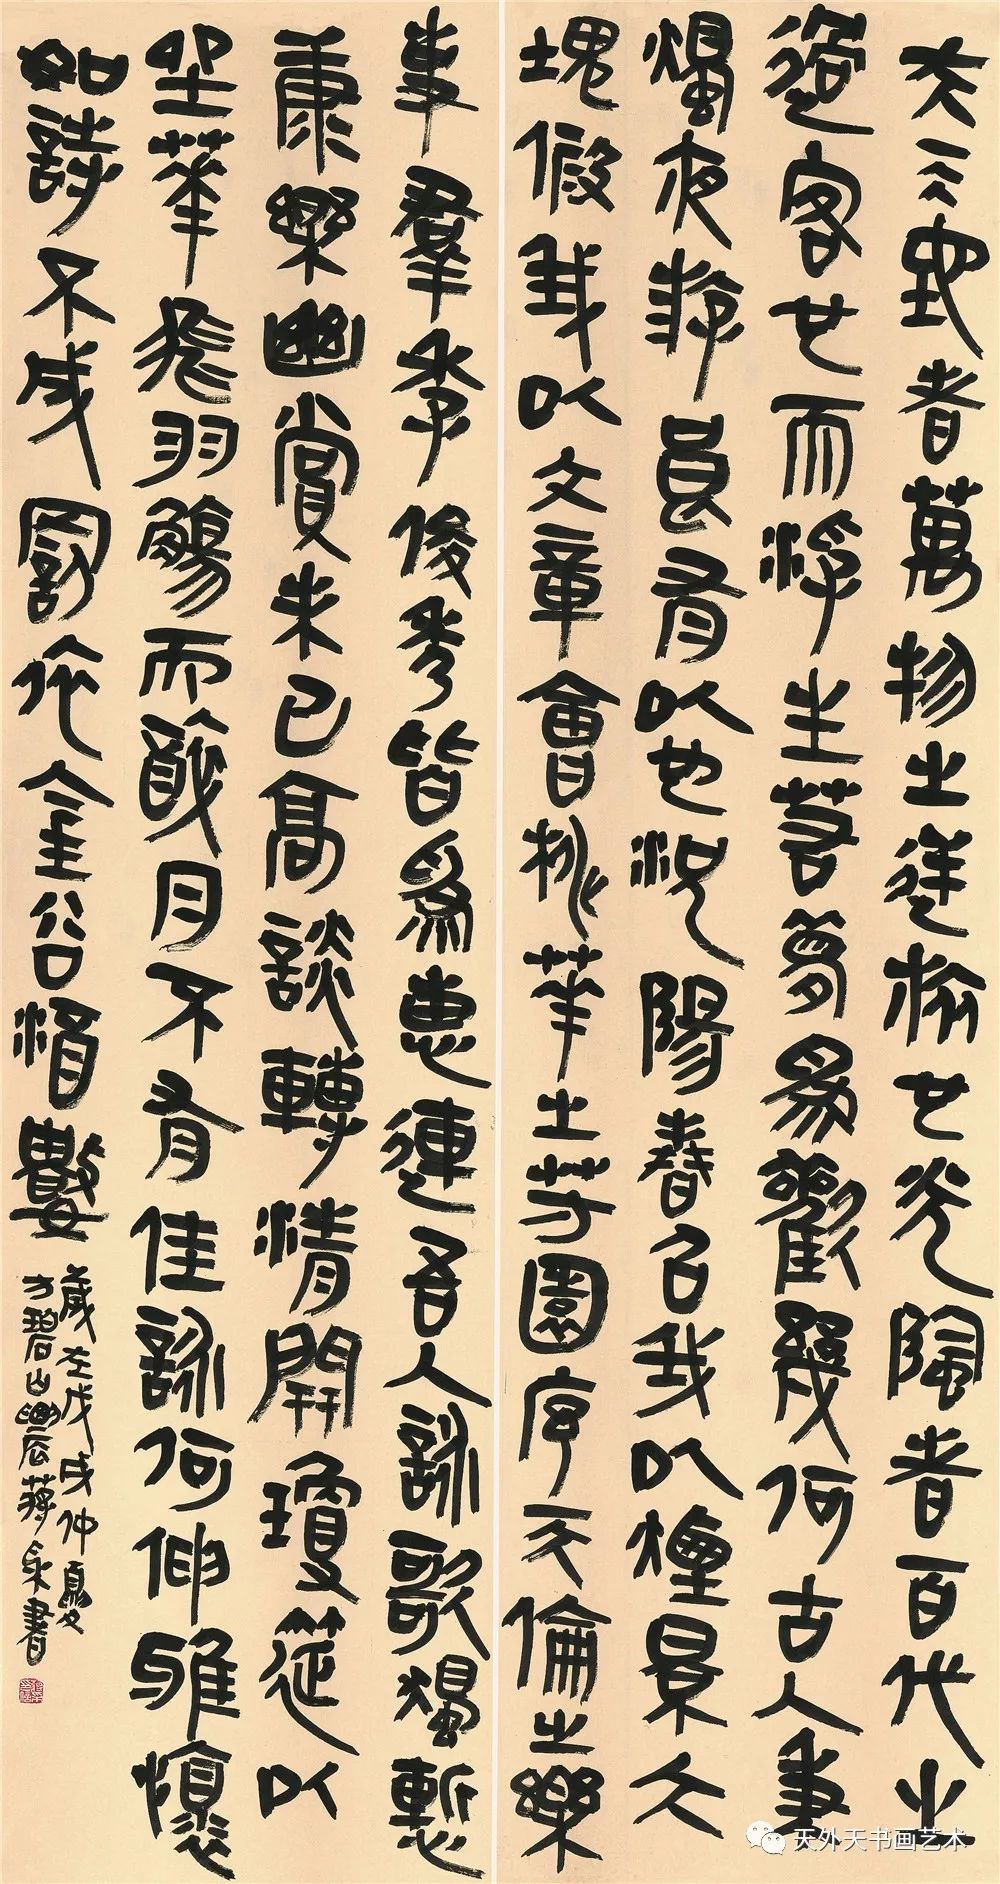 夫天地者萬物之逆旅也光陰者百代之
過客也而浮生若夢為歡幾何古人秉
燭夜游良有以也況陽春召我以煙景大
塊假我以文章會桃華之芳園序天倫之樂
事羣季俊秀皆為惠連吾人詠歌獨慚
康樂幽賞未已高談轉清開瓊筵以
坐華飛羽觴而醉月不有佳詠何伸雅懷
如詩不成罰依金谷酒數
歲在戊戌仲夏
方碧山幽蔣書
天外天书画艺术